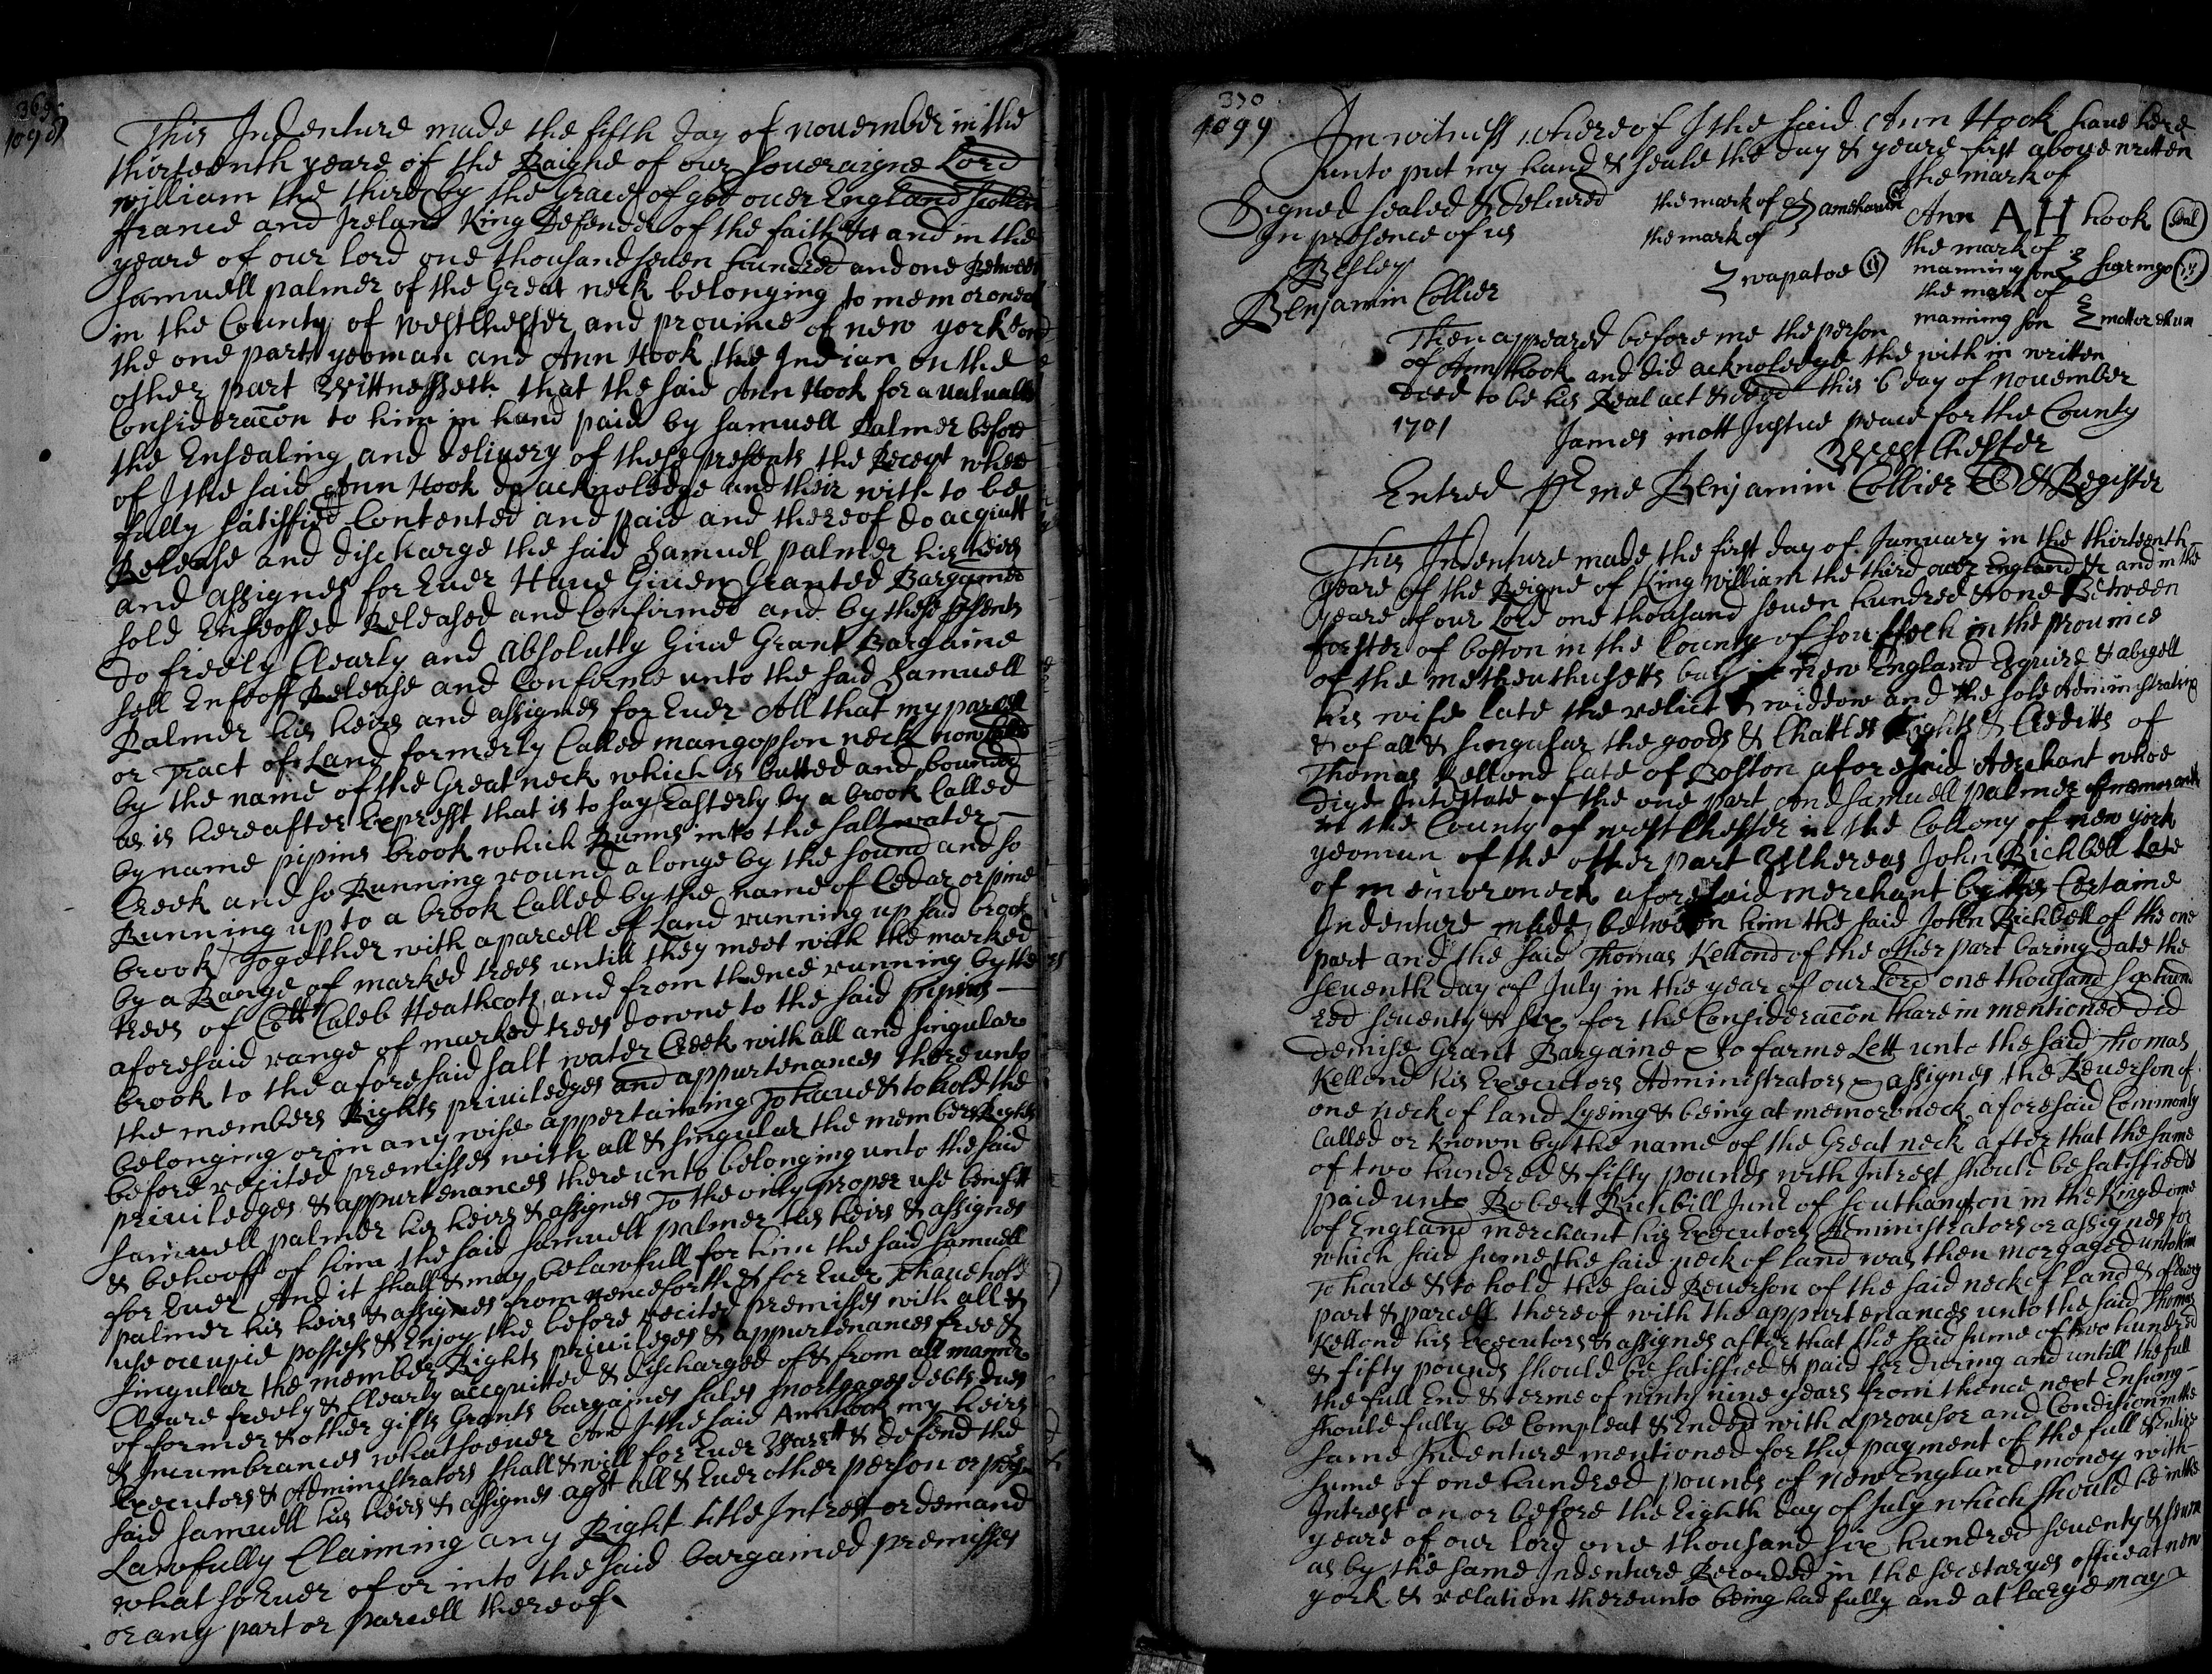 369
1098
This Indenture made the fifth day of november in the
thirteenth yeare of the Raigne of our Soueraigne Lord
william the third by the Grace of god ouer England Scotland
ffrance and Ireland King Defender of the faith &c and in the
yeare of our lord one thousand seuen hundred and one Between
Samuell palmer of the Great neck belonging to memoroneck
in the County of westchester and prouince of new yorke on
the one part yeoman and Ann Hook the Indian on the
other part Wittnesseth that the said Ann Hook for a ualuable
Consideracōn to him in hand paid by Samuell Palmer before
the Ensealing and deliuery of these presents the Receipt where
of I the said Ann Hook do acknoledge and their with to be
fully satisffied Contented and paid and thereof do acquitt
Release and discharge the said Samuel palmer his heirs
and assignes for Euer Haue Giuen Granted Bargained
sold Enfeoffed Released and Confirmed and by these psents
do freely Clearly and absolutly Giue Grant Bargaine
sell Enfeoff Release and Confirme unto the said Samuell
Palmer his heirs and assignes for Euer All that my parcell
or Tract of Land formerly Called mangopson neck now Called
by the name of the Great neck which is butted and bounded
as is hereafter Exprest that is to say Easterly by a brook Called
by name pipins brook which Runns into the salt water
Creek and so Running round alonge by the sound and so
Running up to a brook Called by the name of Cedar or pine
brook Together with a parcell of Land running up said brook
by a Range of marked trees untill they meet with the marked
trees of Coll Caleb Heathcots and from thence running by the
aforesaid range of marked trees downe to the said pipins
brook to the aforesaid salt water Creek with all and singular
the members Rights priuiledges and appurtenances thereunto
belonging or in any wise appertaining To haue & to hold the
before recited premisses with all & singular the members Rights
priuiledges & appurtenances there unto belonging unto the said
Samuell palmer his heirs & assignes To the only proper use benefitt
& behooff of him the said Samuell palmer his heirs & assignes
for Euer And it shall & may be lawfull for him the said Samuell
palmer his heirs & assignes from henceforth & for Euer To haue hold
use occupie possess & Enjoy the before recited premisses with all &
singular the members Rights priuileges & appurtenances free &
Cleare freely & Clearly accquitted & discharged of & from all manner
of former & other gifts Grants bargaines sales mortgages debts dues
& Incumbrances whatsoeuer And I the said Ann hook my heirs
Executors & Administrators shall & will for Euer Warrtt & defend the
said Samuell his heirs & assignes agst all & Euer other person or psons
Lawfully Claiming any Right title Intrest or demand
what soEuer of or into the said bargained premisses
or any part or parcell thereof
370
1099
In witness whereof I the said Ann Hook haue here
unto put my hand & seale the day & yeare first aboue written
the mark of
Signed sealed & deliuered the mark of
Ann AH hook Seal
In presence of us the mark of
the mark of
wapatoe
manningson
the mark of
Benjamin Collier
manning son
Then appeared before me the person
of Ann Hook and did acknoledge the with in written
deed to be his Real act & deed this 6 day of nouember
1701
James mott Justice peace for the County
Westchester
Entred pr me Benjamin Collier & Register
This Indenture made the first day of January in the thirteenth
yeare of the Reigne of King william the third ouer England &c and in the
yeare of our Lord one thousand seuen hundred & one Between
forster of boston in the County of in the prouince
of the in new England Esquire & abigell
his wife late the relict & widdow and the sole Administratrix
& of all & singular the goods & Chattles Rights & Creditts of
Thomas Kellond late of Boston aforesaid Merchant whoe
dige Intestate of the one part and Samuell palmer of
in the County of westchester in the Collony of new york
yeoman of the other part Whereas John Richbell Late
of memoroneck aforesaid merchant by his Certaine
Indenture made between him the said John Richbell of the one
part and the said Thomas Kellond of the other part baring date the
seuenth day of July in the year of our Lord one thousand six hund
red seuenty & six for the Consideracōn thare in mentioned did
demise Grant Bargaine & to farme Lett unto the said Thomas
Kellond his Executors Administrators & assignes the Reuerson of
one neck of land Lyeing & being at memoroneck aforesaid Commonly
Called or known by the name of the Great neck after that the same
of two hundred & fifty pounds with Intrest should be satisfied &
paid unto Robert Richbill Junr of southampton in the Kingdome
of England merchant his Executors Administrators or assignes for
which said sume the said neck of land was then morgaged unto him
To haue & to hold the said Reuerson of the said neck of land & of euery
part & parcell thereof with the appurtenances unto the said Thomas
Kellond his Executors & assignes after that the said sume of two hundred
& fifty pounds should be satisfied & paid for during and untill the full
the full End & terme of ninty nine years from thence next Ensuing
should fully be Compleat & Ended with a prouisor and Condision in the
same Indenture mentioned for the payment of the full & Entire
sume of one hundred pounds of new England money with
Intrest on or before the Eighth day of July which should be in the
yeare of our lord one thousand six hundred seuenty & seuen
as by the same Indenture Recorded in the secetaryes office at new
york & relation thereunto being had fully and at large may